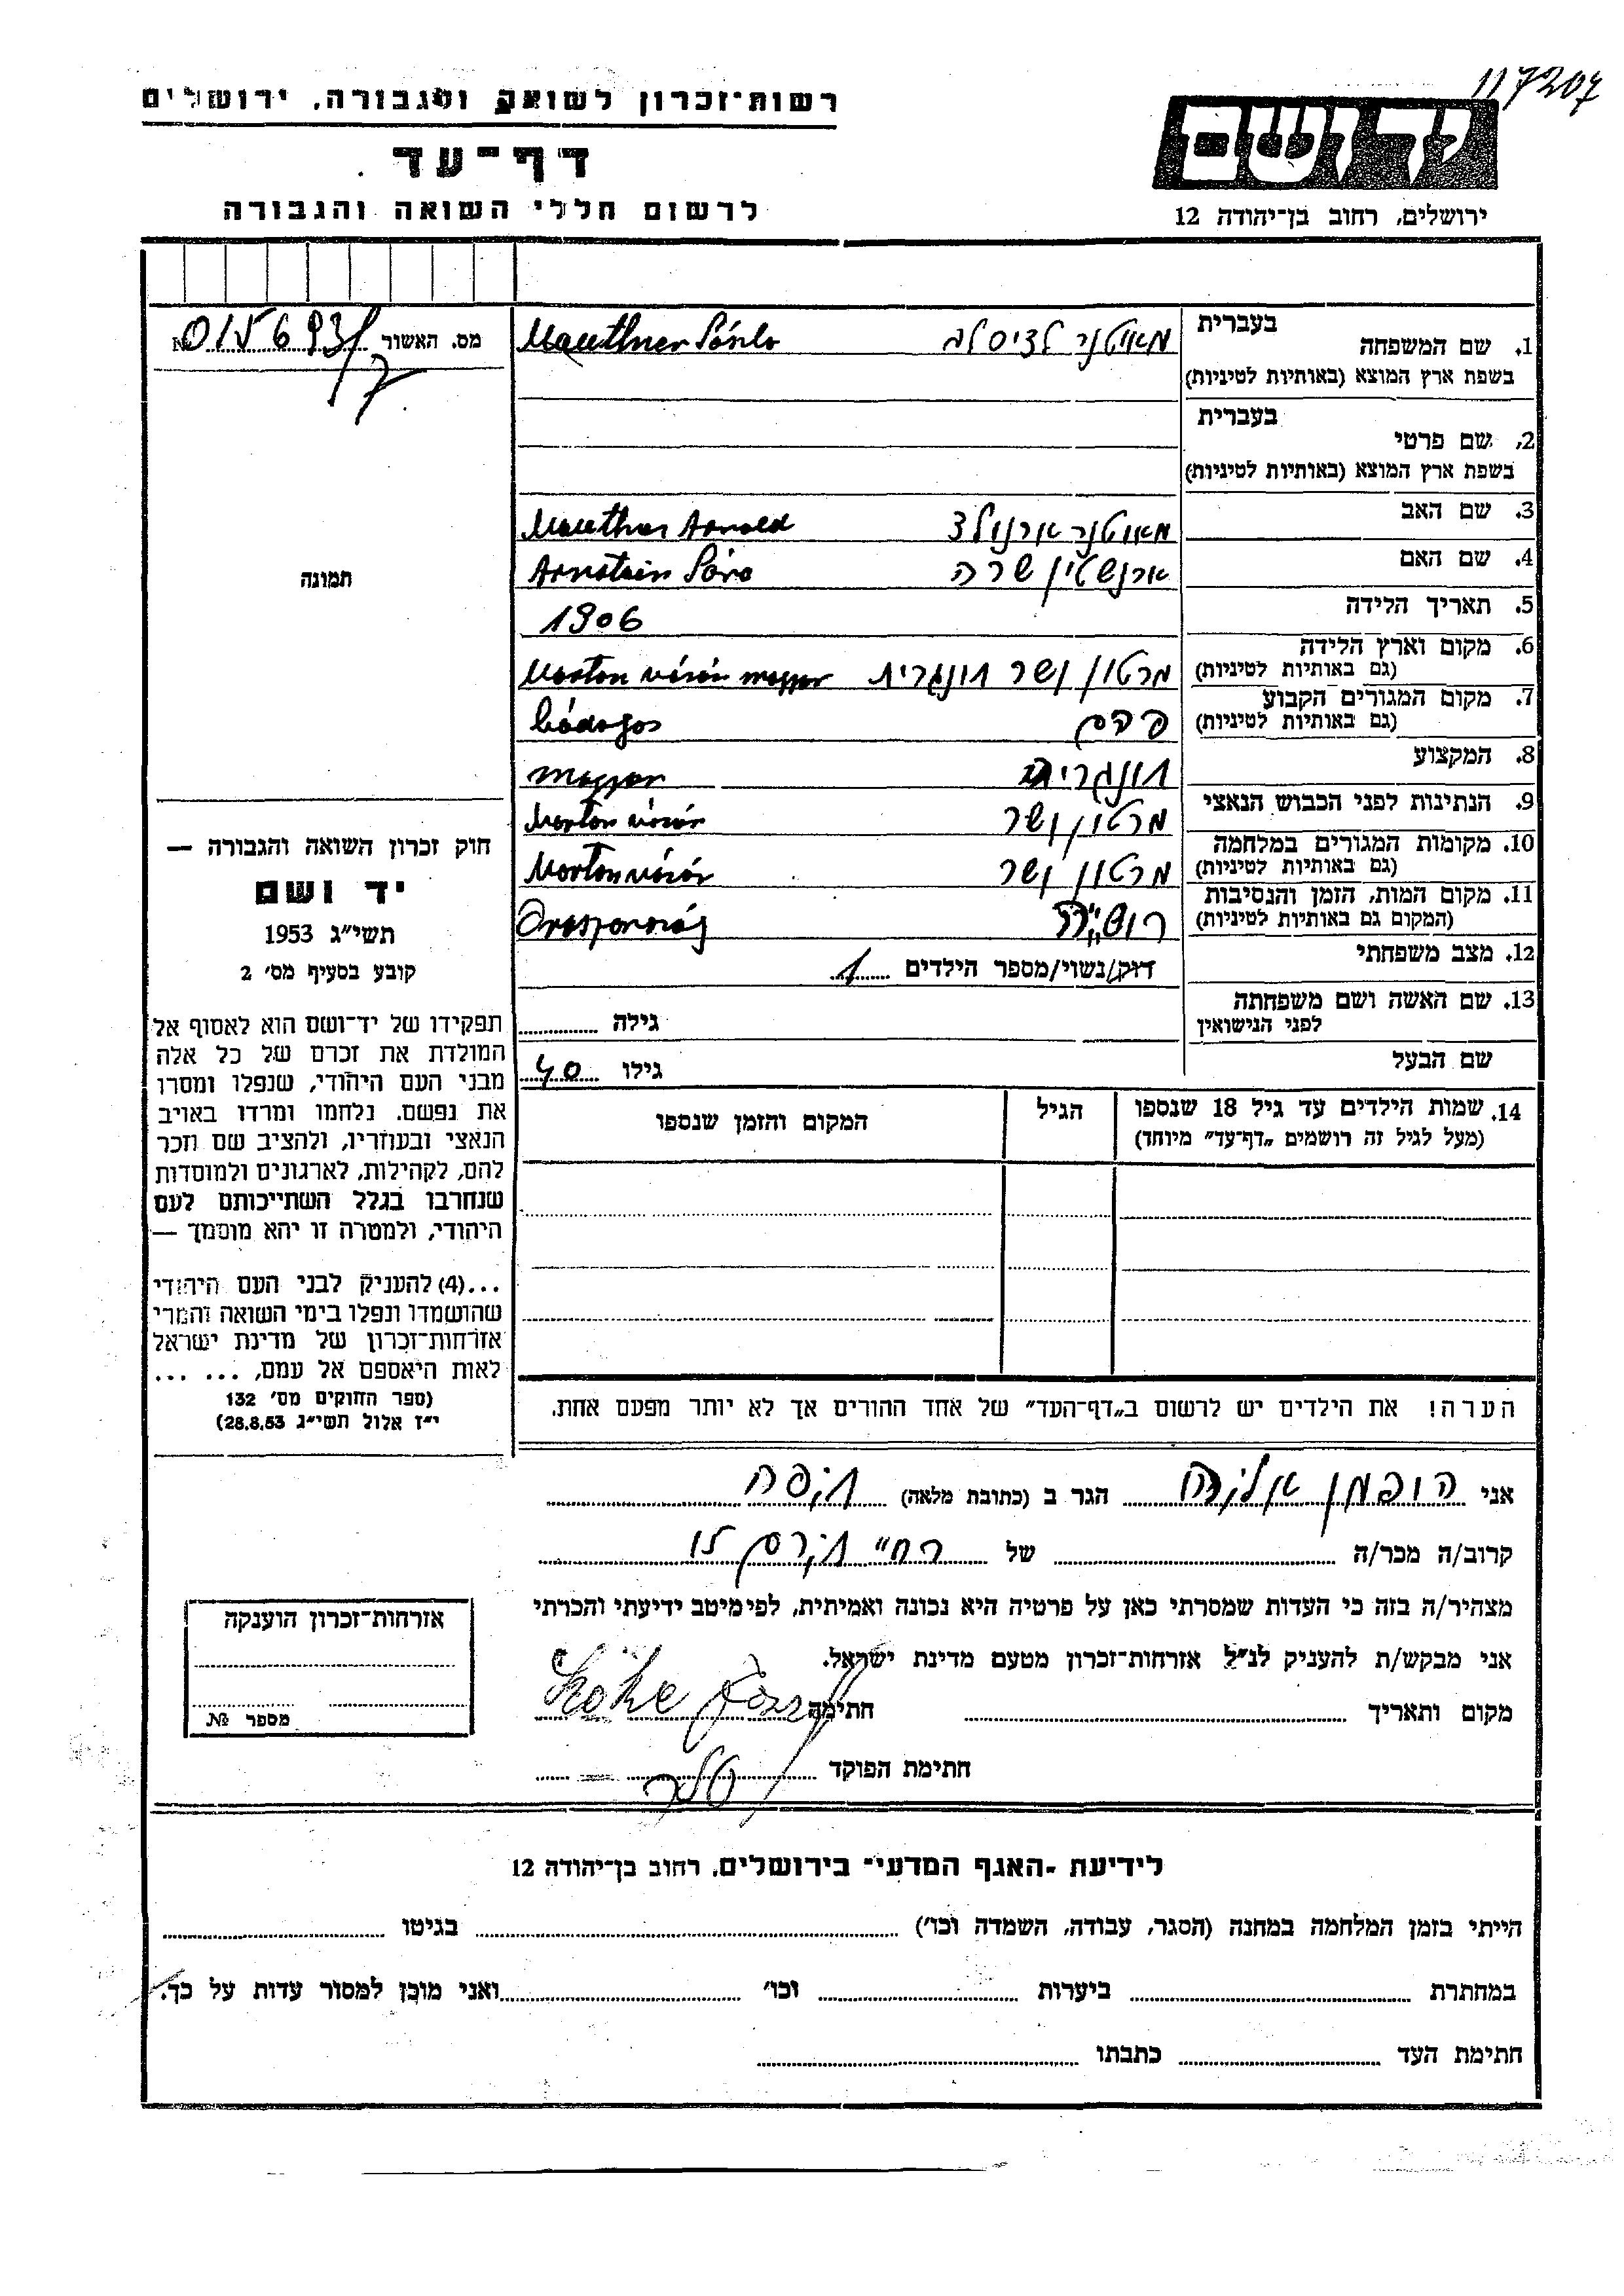 117207
רשות-זכרון לשואה והגבורה, ירושלים
דף-עד
לרשום חללי השואה והגבורה
ידושם
ירושלים, רחוב בן-יהודה 12
מס. האשור №
בעברית
1. שם המשפחה
בשפת ארץ המוצא (באותיות לטיניות)
מאוטנר לציסלב Mauthner
בעברית
2. שם פרטי
בשפת ארץ המוצא (באותיות לטיניות)
3. שם האב
מאוטנר ארנולד Mauthner Arnold
4. שם האם
ארנשטין שרה Arnstein Sára
5. תאריך הלידה
1906
6. מקום וארץ הלידה
(גם באותיות לטיניות)
מרטון ושר הונגרית Morton vásár magyar
7. מקום המגורים הקבוע
(גם באותיות לטיניות)
bádogos
8. המקצוע
הונגריה magyar
9. הנתינות לפני הכבוש הנאצי
מרטון ושר Morton vásár
10. מקומות המגורים במלחמה
(גם באותיות לטיניות)
מרטון ושר Morton vásár
11. מקום המות, הזמן והנסיבות
(המקום גם באותיות לטיניות)
רוסיה Oroszország
12. מצב משפחתי
רוק/נשוי/מספר הילדים 1
13. שם האשה ושם משפחתה
לפני הנישואין
גילה
שם הבעל
גילו 40
14. שמות הילדים עד גיל 18 שנספו
(מעל לגיל זה רושמים „דף-עד" מיוחד)
הגיל
המקום והזמן שנספו
תמונה
חוק זכרון השואה והגבורה —
יד ושם
תשי"ג 1953
קובע בסעיף מס' 2
תפקידו של יד-ושם הוא לאסוף אל
המולדת את זכרם של כל אלה
מבני העם היהודי, שנפלו ומסרו
את נפשם. נלחמו ומרדו באויב
הנאצי ובעוזריו, ולהציב שם וזכר
להם, לקהילות, לארגונים ולמוסדות
שנחרבו בגלל השתייכותם לעם
היהודי, ולמטרה זו יהא מוסמך —
...(4) להעניק לבני העם היהודי
שהושמדו ונפלו בימי השואה והמרי
אזרחות-זכרון של מדינת ישראל
לאות היאספם אל עמם, ... ...
(ספר החוקים מס' 132
י"ז אלול תשי"ג 28.8.53)
הערה! את הילדים יש לרשום ב„דף-העד" של אחד ההורים אך לא יותר מפעם אחת.
אני הופמן הגר ב (כתובת מלאה) חיפה
קרוב/ה מכר/ה של
מצהיר/ה בזה כי העדות שמסרתי כאן על פרטיה היא נכונה ואמיתית, לפי מיטב ידיעתי והכרתי
אני מבקש/ת להעניק לנ"ל אזרחות-זכרון מטעם מדינת ישראל.
מקום ותאריך חתימה
חתימת הפוקד
אזרחות-זכרון הוענקה
מספר №
לידיעת -האגף המדעי- בירושלים, רחוב בן-יהודה 12
הייתי בזמן המלחמה במחנה (הסגר, עבודה, השמדה וכו') בגיטו
במחתרת ביערות וכו' ואני מוכן למסור עדות על כך.
חתימת העד כתבתו